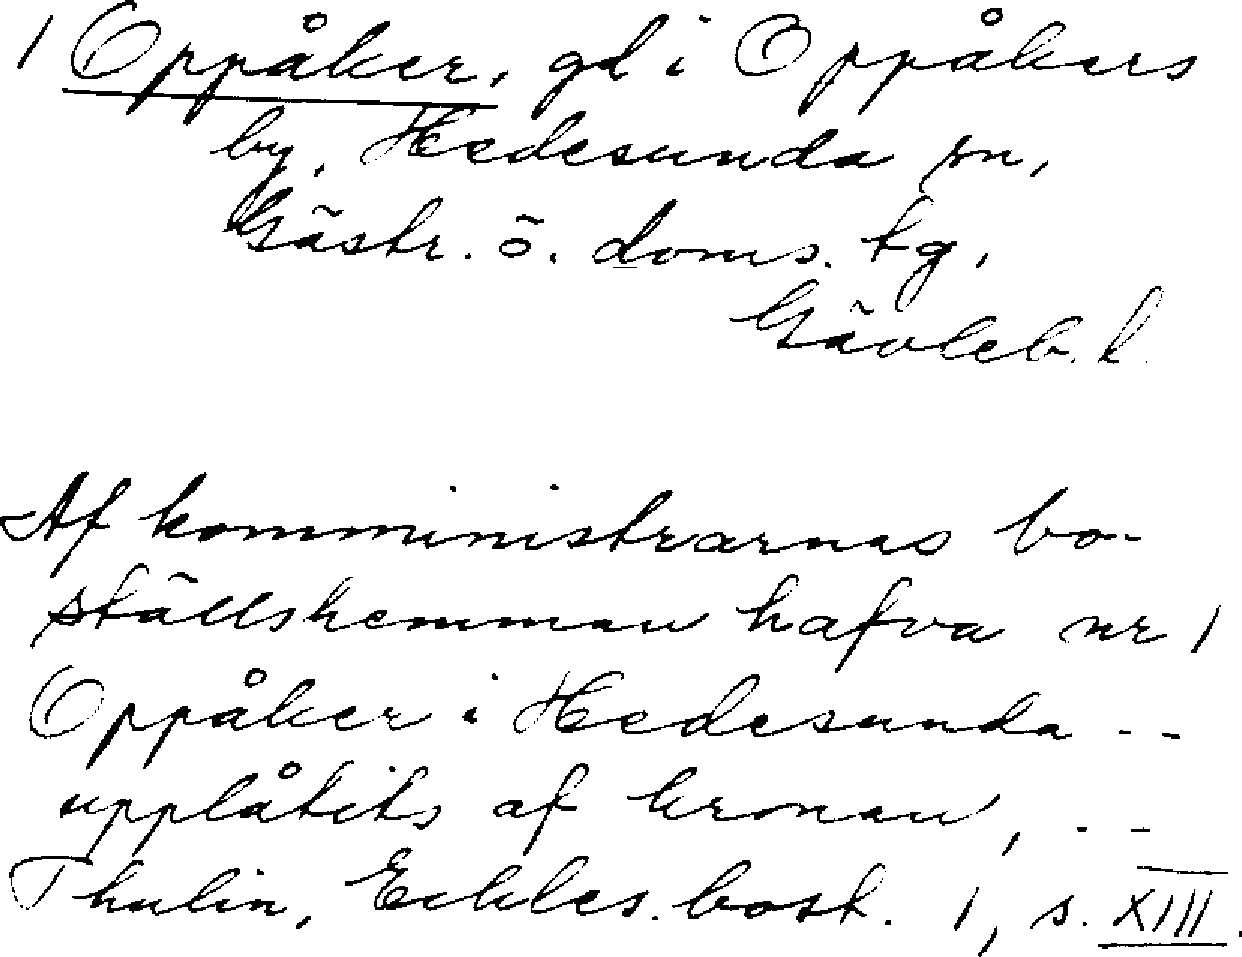 1 Oppåker, gd i Oppåkers
by, Hedesunda sn,
Gästr. ö. doms. tg,
Gävleb. l.
Af komministrarnas bo-
ställshemman hafva nr 1
Oppåker i Hedesunda --
upplåtits af kronan, --
Thulin, Eckles. bost. 1, s. XIII.